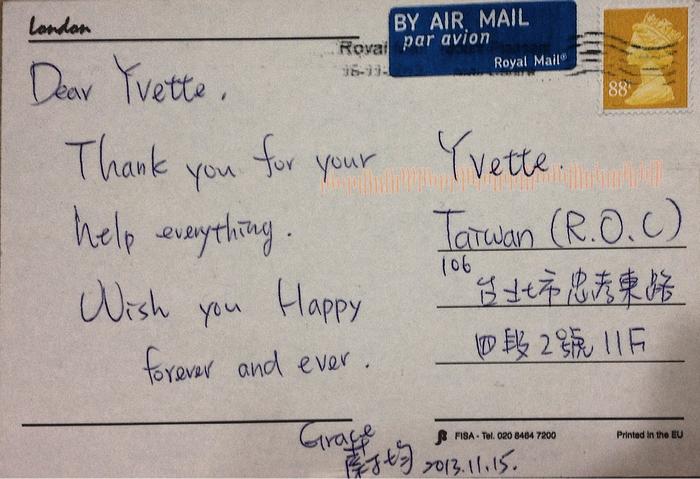 London
BY AIR MAIL
par avion
Royal Mail®
Royal
88
Dear Yvette,
Thank you for your
help everything.
Wish you Happy
forever and ever.
Grace
2013.11.15.
Yvette.
Taiwan (R.O.C)
106
台北市忠孝東路
四段2號11F
FISA - Tel. 020 8464 7200
Printed in the EU